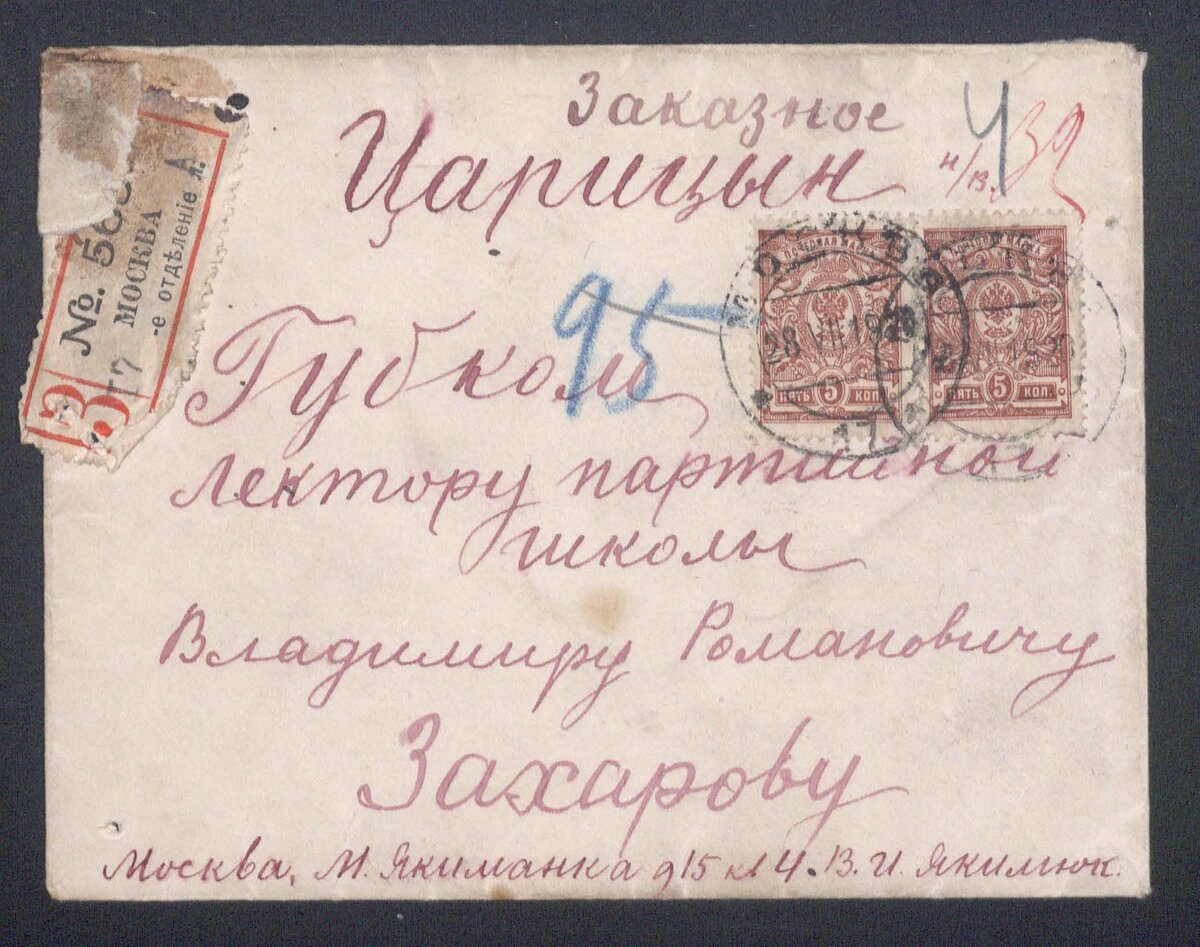 Заказное
Царицын
н/в. 39
Ч
№. 568
МОСКВА
17-е отдѣленіе А
З
95
ПОЧТОВАЯ МАРКА
5
ПЯТЬ КОП.
ПОЧТОВАЯ МАРКА
5
ПЯТЬ КОП.
МОСКВА
28 VII 19 20
17
Губком
лектору партийной
школы
Владимиру Романовичу
Захарову
Москва, М. Якиманка д15 кв 4. В. И. Якимюк.